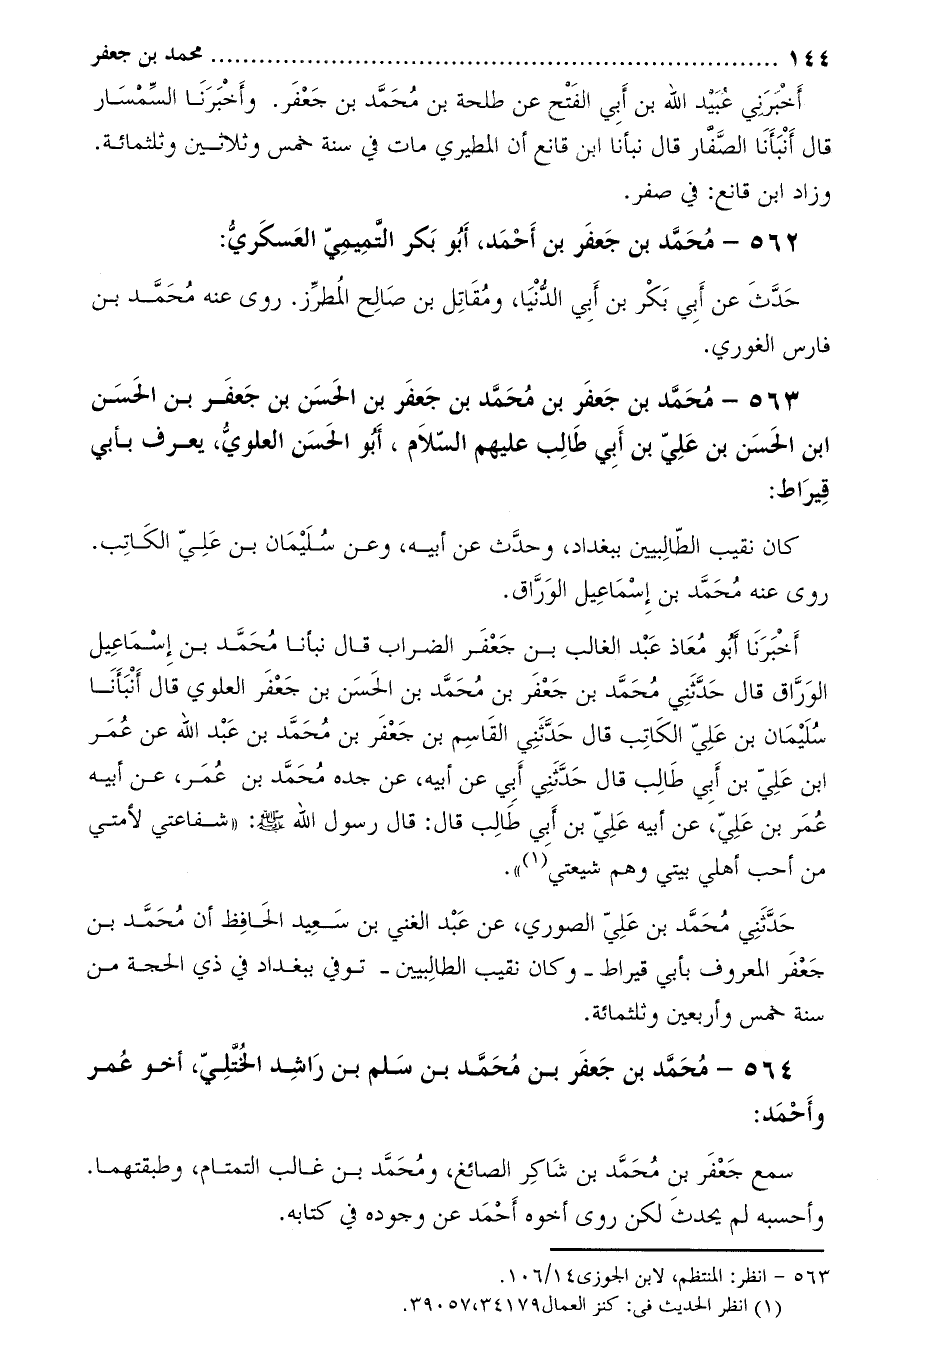 ١٤٤ ........................................................................ محمد بن جعفر
أَخْبَرَنِي عُبَيْد الله بن أَبِي الفَتْح عن طلحة بن مُحَمَّد بن جَعْفَر. وأَخْبَرَنَا السِّمْسَار
قال أَنْبَأَنَا الصَّفَّار قال نبأنا ابن قانع أن المطيري مات في سنة خمس وثلاثين وثلثمائة.
وزاد ابن قانع: في صفر.
٥٦٢ – مُحَمَّد بن جَعفَر بن أَحْمَد، أَبُو بَكر التَّمِيمِيّ العَسكَرِيُّ:
حَدَّثَ عن أَبِي بَكْر بن أَبِي الدُّنْيَا، ومُقَاتِل بن صَالِح المُطرِّز. روى عنه مُحَمَّد بن
فارس الغوري.
٥٦٣ – مُحَمَّد بن جَعفَر بن مُحَمَّد بن جَعفَر بن الحَسَن بن جَعفَر بن الحَسَن
ابن الحَسَن بن عَلِيّ بن أَبِي طَالِب عليهم السّلَام ، أَبُو الحَسَن العلوِيُّ، يعرف بأبي
قِيرَاط:
كان نقيب الطَّالِبيين ببغداد، وحدَّث عن أبيه، وعن سُلَيْمَان بن عَلِيّ الكَاتِب.
روى عنه مُحَمَّد بن إِسْمَاعِيل الوَرَّاق.
أَخْبَرَنَا أَبُو مُعَاذ عَبْد الغالب بن جَعْفَر الضراب قال نبأنا مُحَمَّد بن إِسْمَاعِيل
الوَرَّاق قال حَدَّثَنِي مُحَمَّد بن جَعْفَر بن مُحَمَّد بن الحَسَن بن جَعْفَر العلوي قال أَنْبَأَنَا
سُلَيْمَان بن عَلِيّ الكَاتِب قال حَدَّثَنِي القَاسِم بن جَعْفَر بن مُحَمَّد بن عَبْد الله عن عُمَر
ابن عَلِيّ بن أَبِي طَالِب قال حَدَّثَنِي أَبِي عن أبيه، عن جده مُحَمَّد بن عُمَر، عن أبيه
عُمَر بن عَلِيّ، عن أبيه عَلِيّ بن أَبِي طَالِب قال: قال رسول الله ﷺ: «شفاعتي لأمتي
من أحب أهلي بيتي وهم شيعتي(١)».
حَدَّثَنِي مُحَمَّد بن عَلِيّ الصوري، عن عَبْد الغني بن سَعِيد الحَافِظ أن مُحَمَّد بن
جَعْفَر المعروف بأبي قيراط ـ وكان نقيب الطالِبيين ـ توفي ببغداد في ذي الحجة من
سنة خمس وأربعين وثلثمائة.
٥٦٤ – مُحَمَّد بن جَعفَر بن مُحَمَّد بن سَلم بن رَاشِد الخُتَّلِيّ، أخو عُمر
وأَحْمَد:
سمع جَعْفَر بن مُحَمَّد بن شَاكِر الصائغ، ومُحَمَّد بن غالب التمتام، وطبقتهما.
وأحسبه لم يحدث لكن روى أخوه أَحْمَد عن وجوده في كتابه.
٥٦٣ – انظر: المنتظم، لابن الجوزى١٠٦/١٤.
(١) انظر الحديث فى: كنز العمال٣٤١٧٩،٣٩٠٥٧.